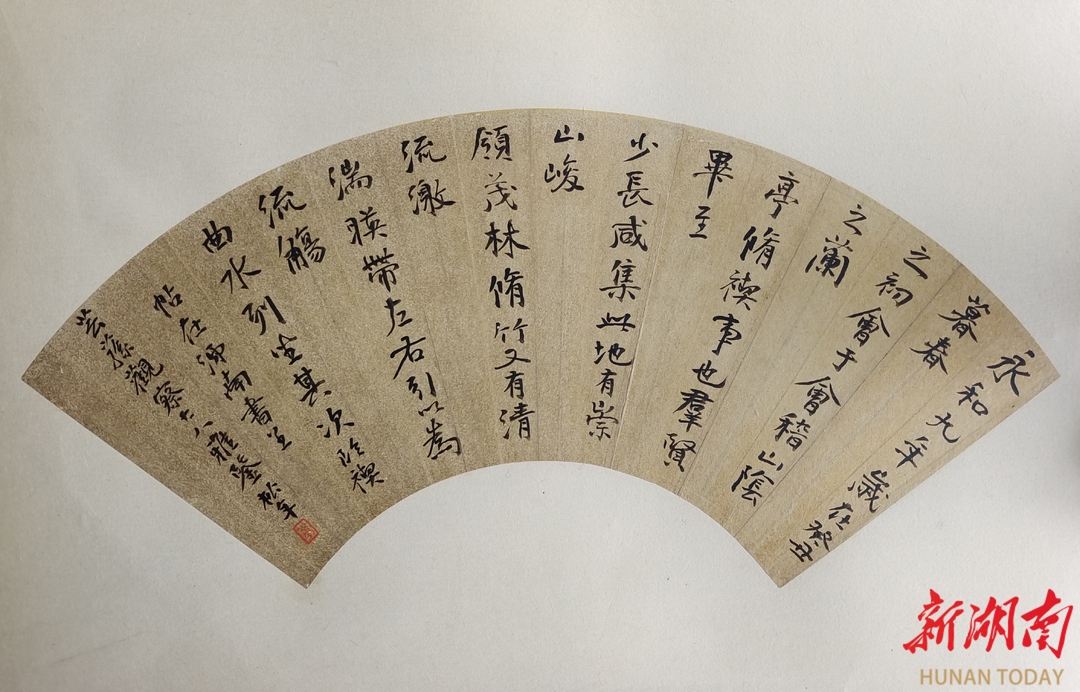 永和九年歲在癸丑
暮春
之初會于會稽山陰
之蘭
亭脩禊事也羣賢
畢至
少長咸集此地有崇
山峻
領茂林脩竹又有清
流激
湍暎帶左右引以為
流觴
曲水列坐其次 臨禊
帖在泲南書呈
芸蓀觀察大人雅鑒 松年
新湖南
HUNAN TODAY